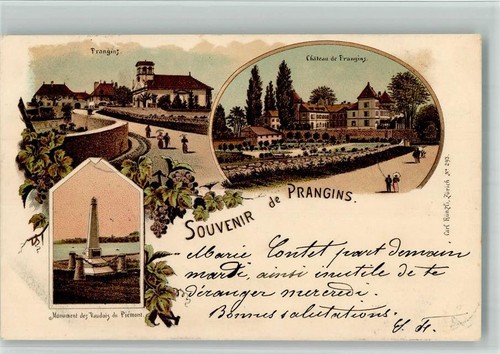 Prangins.
Château de Prangins.
SOUVENIR de PRANGINS.
Carl Künzli, Zürich No 293.
Monument des Vaudois du Piémont.
Marie Contet part demain
mardi, ainsi inutile de te
déranger mercredi.
Bonnes salutations.